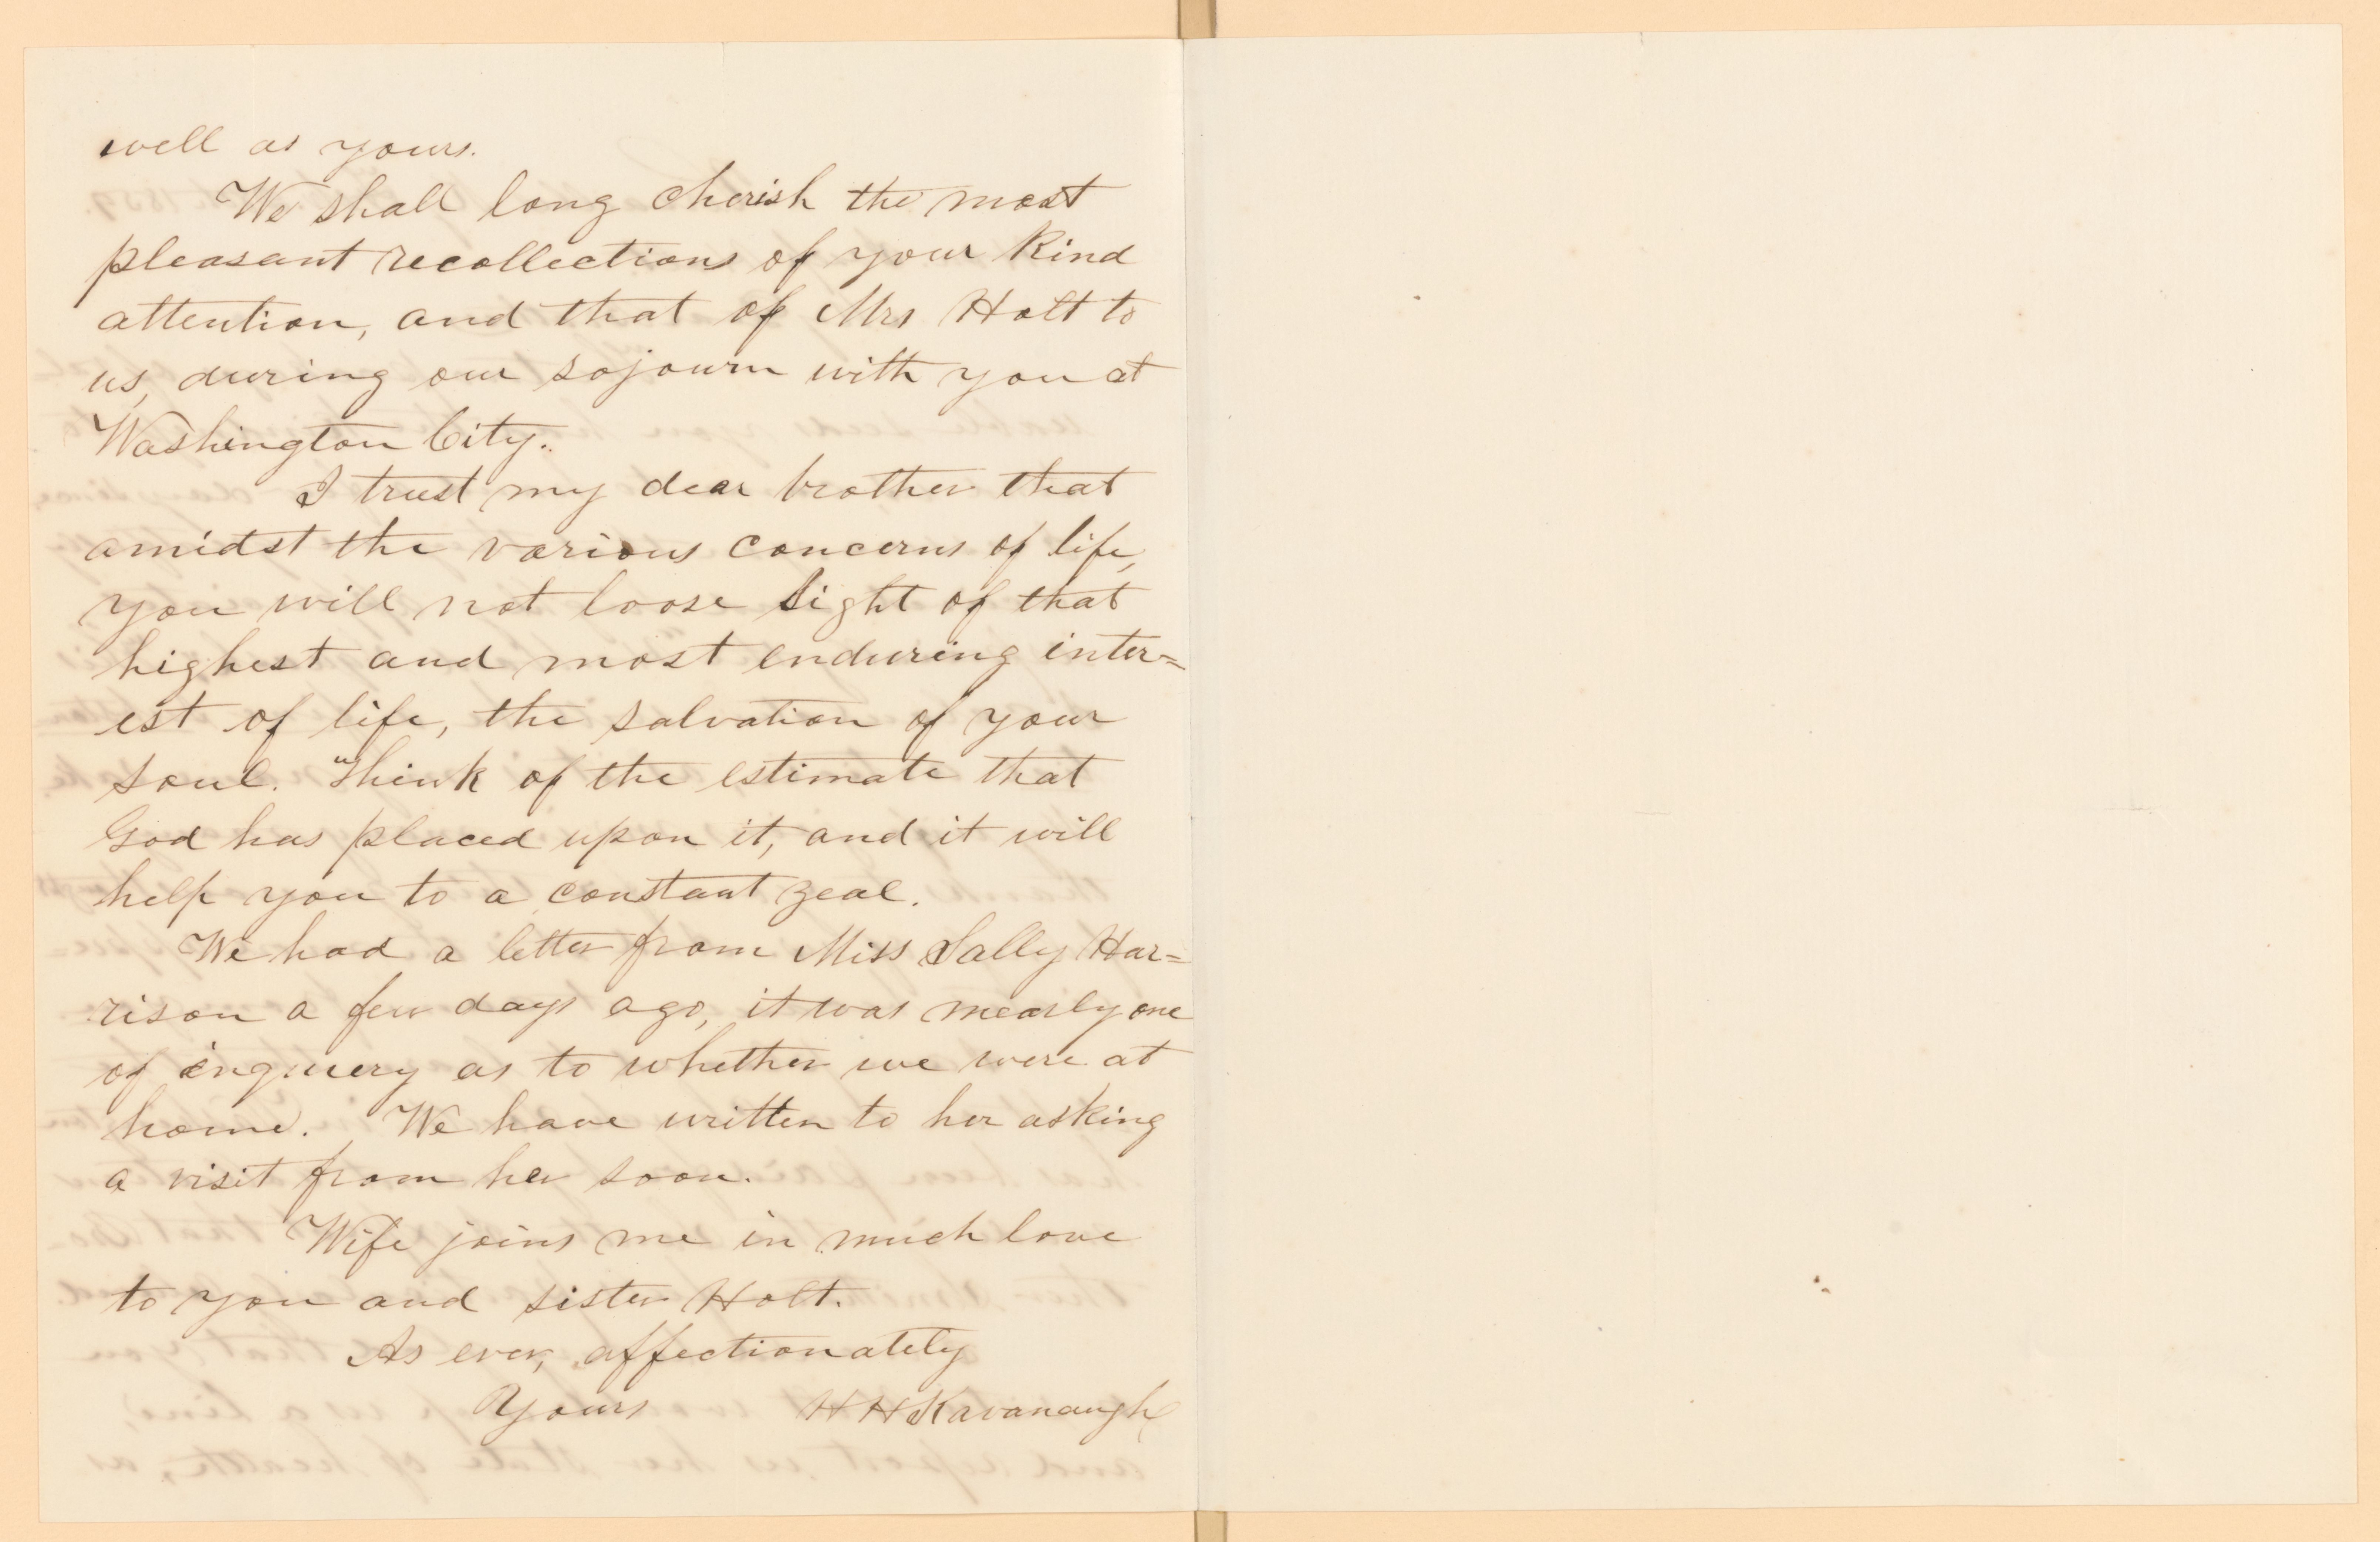 well as yours.
We shall long cherish the most
pleasant recollections of your kind
attention, and that of Mrs Holt to
us, during our sojourn with you at
Washington City.
I trust my dear brother that
amidst the various concerns of life,
you will not loose sight of that
highest and most enduring inter=
est of life, the salvation of your
soul. Think of the estimate that
God has placed upon it, and it will
help you to a constant zeal.
We had a letter from Miss Sally Har=
rison a few days ago, it was mearly one
of inquiery as to whether we were at
home. We have written to her asking
a visit from her soon.
Wife joins me in much love
to you and sister Holt.
As ever, affectionately
Yours H H Kavanaugh